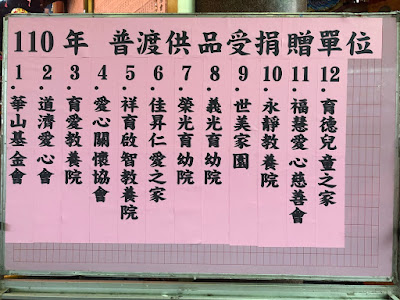 110年 普渡供品受捐贈單位
1.華山基金會
2.道濟愛心會
3.育愛教養院
4.愛心關懷協會
5.祥育啟智教養院
6.佳昇仁愛之家
7.榮光育幼院
8.義光育幼院
9.世美家園
10.永靜教養院
11.福慧愛心慈善會
12.育德兒童之家